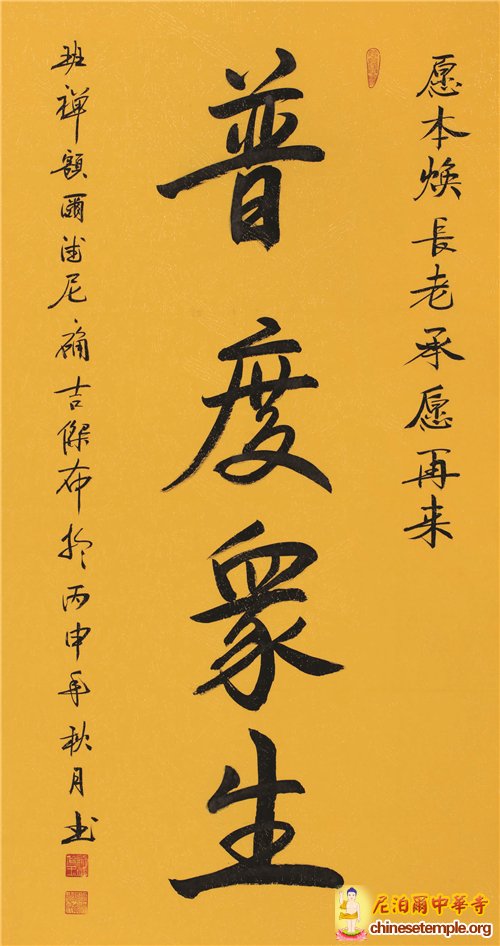 愿本焕長老承愿再来
普度眾生
班禪額爾滿尼確吉傑布於丙申年秋月书
尼泊爾中華寺
chinesetemple.org